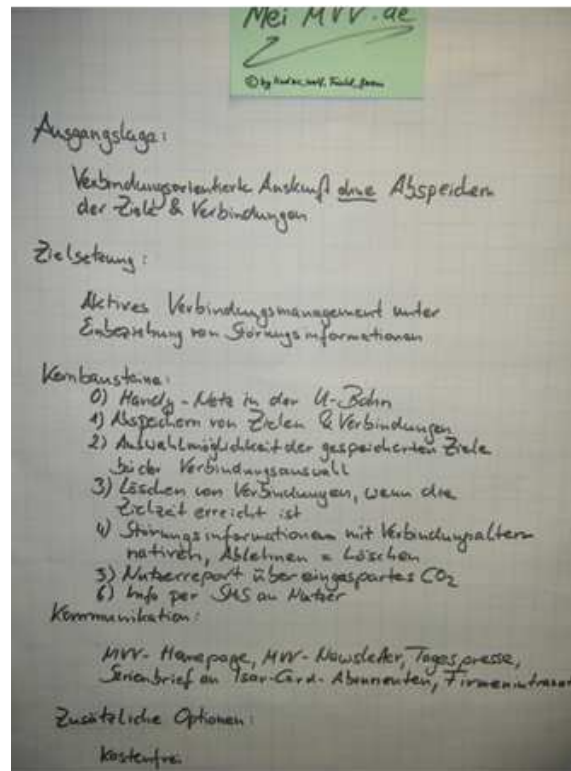 Mei MVV.de
© by
Ausgangslage:
Verbindungsorientierte Auskunft ohne Abspeichern
der Ziele & Verbindungen
Zielsetzung:
Aktives Verbindungsmanagement unter
Einbeziehung von Störungsinformationen
Kernbausteine:
0) Handy-Netz in der U-Bahn
1) Abspeichern von Zielen & Verbindungen
2) Auswahlmöglichkeit der gespeicherten Ziele
bei der Verbindungsauswahl
3) Löschen von Verbindungen, wenn die
Zielzeit erreicht ist
4) Störungsinformationen mit Verbindungsalter-
nativen, Ablehnen = Löschen
5) Nutzerreport über eingespartes CO2
6) Info per SMS an Nutzer
Kommunikation:
MVV-Homepage, MVV-Newsletter, Tagespresse,
Serienbrief an Isar-Card-Abonnenten, Firmenintranet
Zusätzliche Optionen:
kostenfrei